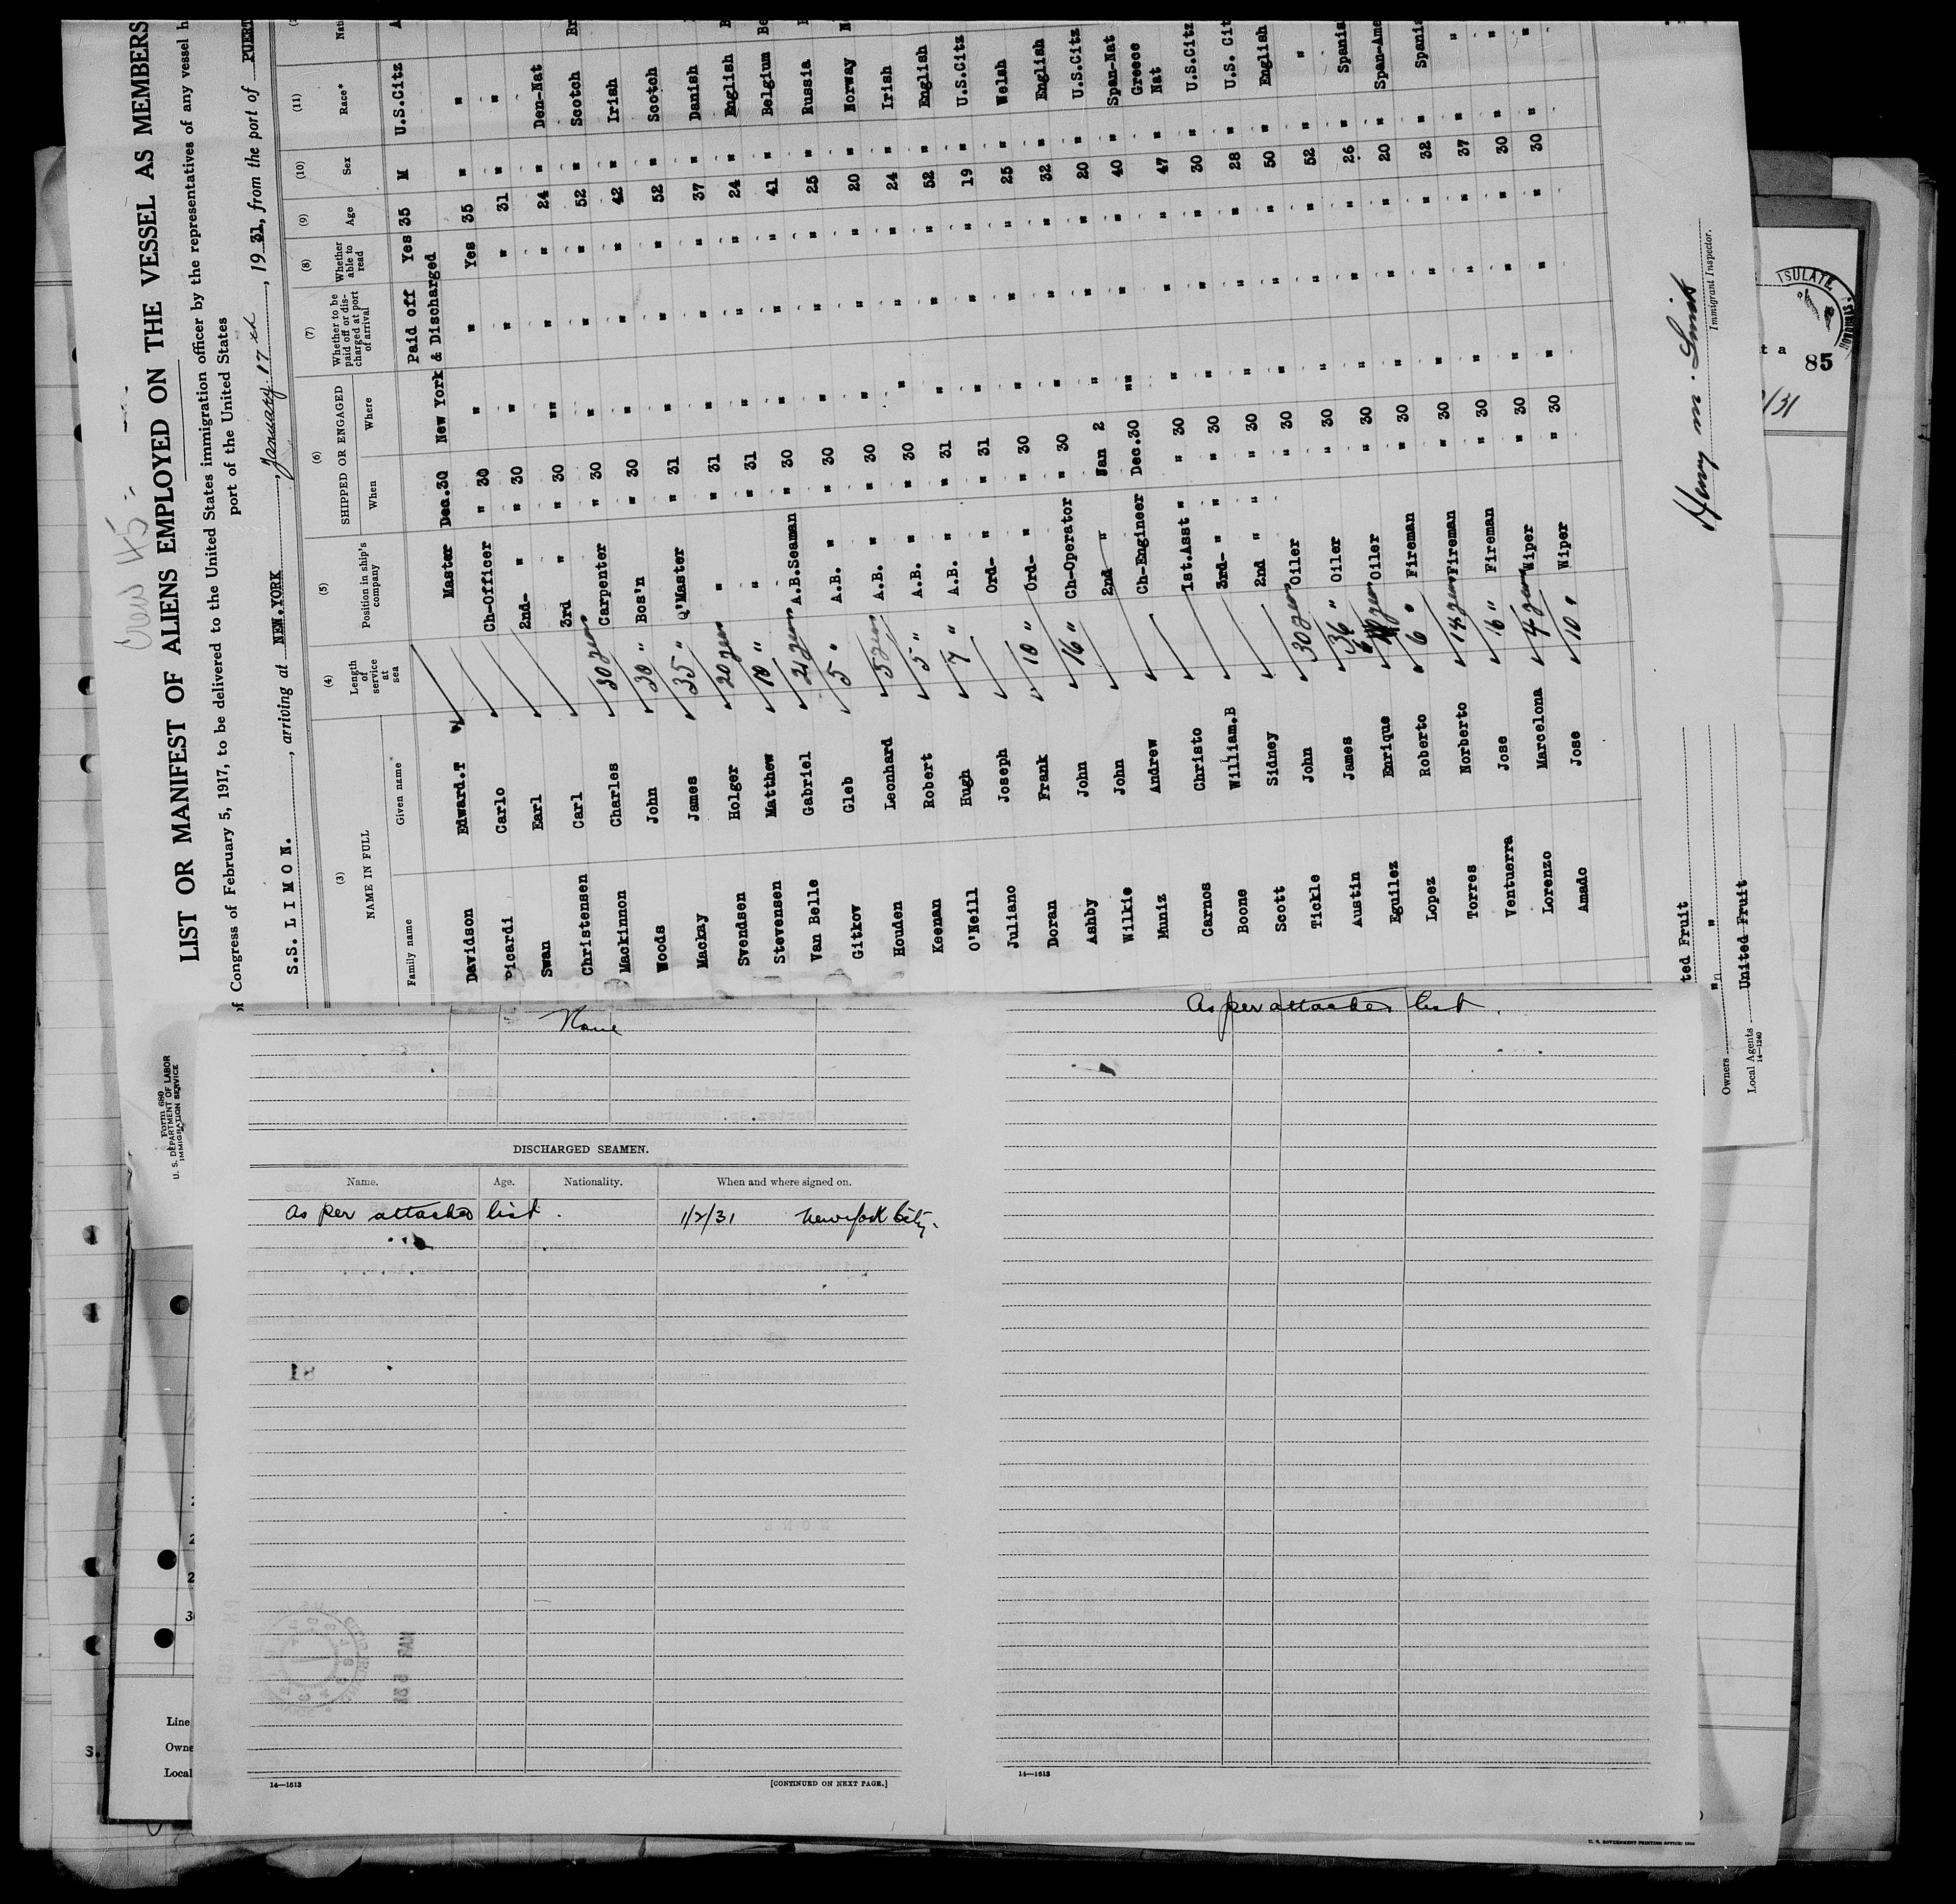 Crew 45
LIST OR MANIFEST OF ALIENS EMPLOYED ON THE VESSEL AS MEMBERS
of Congress of February 5, 1917, to be delivered to the United States immigration officer by the representatives of any vessel h
port of the United States
S.S. LIMON., arriving at NEW.YORK, January 17th, 1931, from the port of PUERT
(3) (4) (5) (6) (7) (8) (9) (10) (11)
NAME IN FULL Length of service at sea Position in ship's company SHIPPED OR ENGAGED Whether to be paid off or discharged at port of arrival Whether able to read Age Sex Race* Nati
Family name Given name When Where
Davidson Edward.T Master Dec.30 New York Paid off & Discharged Yes 35 M U.S.Citz A
Picardi Carlo Ch-Officer " 30 " " Yes 35 " "
Swan Earl 2nd- " " 30 " " " 31 " "
Christensen Carl 3rd " " 30 "" " " 24 " Den-Nat
Mackinnon Charles 30 years Carpenter " 30 " " " 52 " Scotch Br
Woods John 30 " Bos'n " 30 " " " 42 " Irish
Mackay James 35 " Q'Master " 31 " " " 52 " Scotch
Svendsen Holger 20 years " " 31 " " " 37 " Danish
Stevensen Matthew 10 " " " 31 " " " 24 " English
Van Belle Gabriel 21 years A.B.Seaman " 30 " " " 41 " Belgium Be
Gitkov Gleb 5 " A.B. " " 30 " " " 25 " Russia
Houden Leonhard 5 years A.B. " " 30 " " " 20 " Norway
Keenan Robert 5 " A.B. " " 30 " " " 24 " Irish
O'Neill Hugh 7 " A.B. " " 31 " " " 52 " English
Juliano Joseph Ord- " " 31 " " " 19 " U.S.Citz
Doran Frank 10 " Ord- " " 30 " " " 25 " Welsh
Ashby John 16 " Ch-Operator " 30 " " " 32 " English
Wilkie John 2nd " Jan 2 " " " 20 " U.S.Citz
Muniz Andrew Ch-Engineer Dec.30 "" " " 40 " Span-Nat
Carnos Christo 1st.Asst " " 30 " " " 47 " Greece Nat
Boone William.B 3rd- " " " 30 " " " 30 " U.S.Citz
Scott Sidney 2nd " " " 30 " " " 28 " U.S. Cit
Tickle John 30 years Oiler " 30 " " " 50 " English
Austin James 36 " Oiler " 30 " " " 52 " "
Eguilez Enrique 6 years Oiler " 30 " " " 26 " Spanis
Lopez Roberto 6 " Fireman " 30 " " " 20 " Span-Ame
Torres Norberto 14 years Fireman " 30 " " " 32 " Spanis
Ventuerra Jose 16 " Fireman " 30 " " " 37 " "
Lorenzo Marcelona 4 years Wiper " 30 " " " 30 " "
Amado Jose 10 " Wiper " 30 " " " 30 " "
Henry M. Smith
Immigrant Inspector.
ted Fruit
Owners " "
Local Agents United Fruit
14—1240
Form 680
U. S. DEPARTMENT OF LABOR
IMMIGRATION SERVICE
SULATE
85
/31
None
DISCHARGED SEAMEN.
Name. Age. Nationality. When and where signed on.
as per attached list. 1/2/31 New York City.
14—1613 [CONTINUED ON NEXT PAGE.]
As per attached list.
14—1613
Line
Owne
Local
U. S. GOVERNMENT PRINTING OFFICE